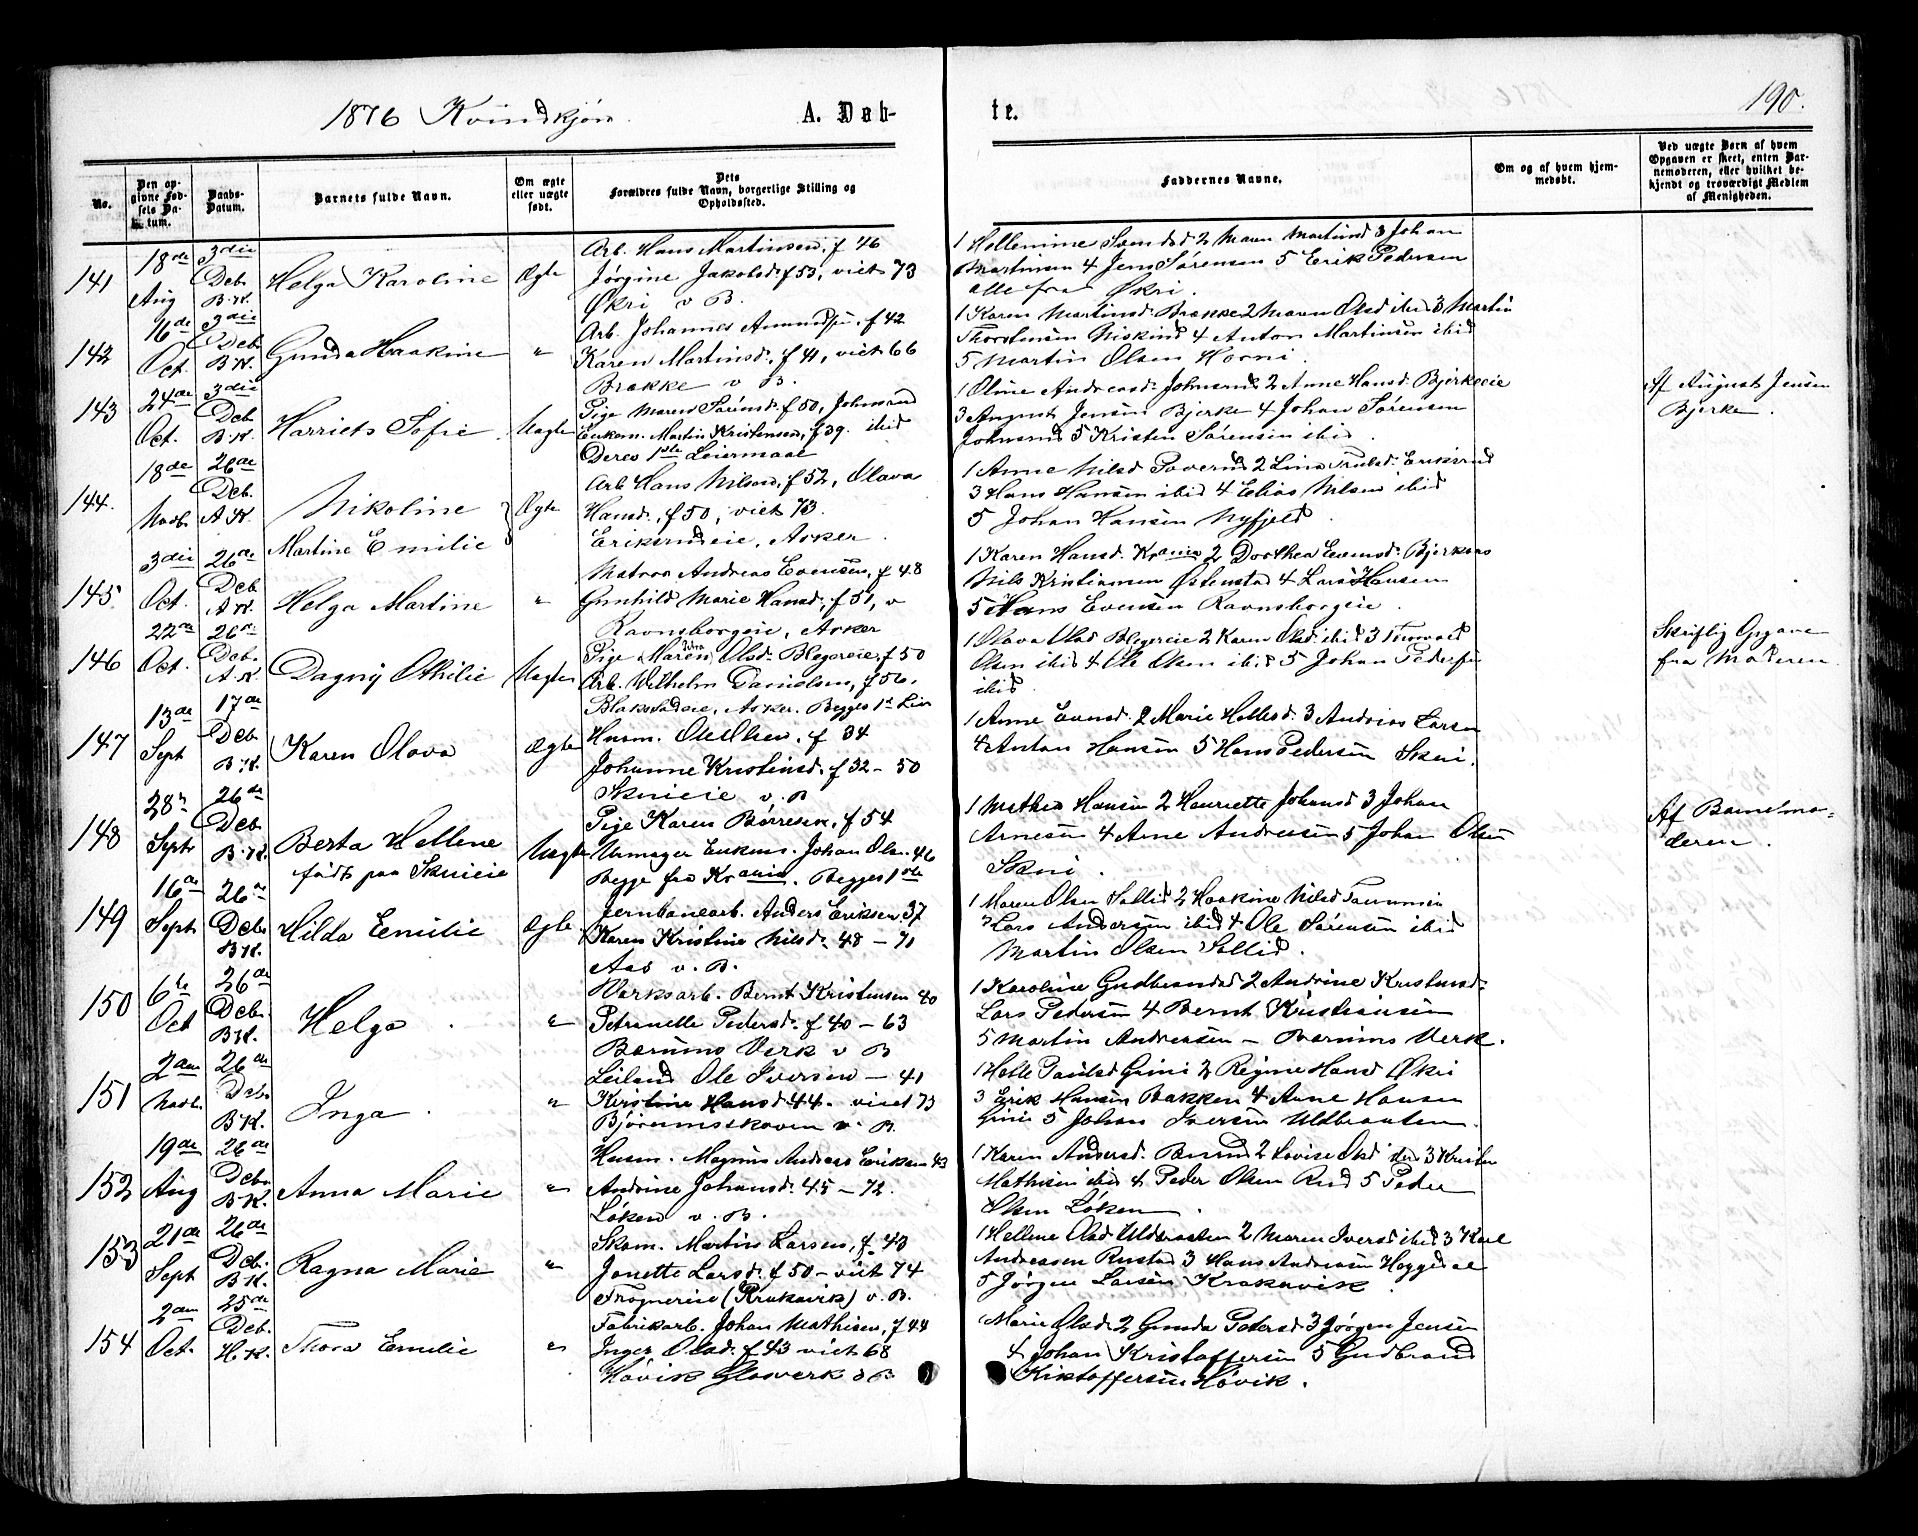 1876 Kvindkjøn. A. Døb-
te. 190.
No.
Den op-
givne Fød-
sels Da-
tum.
Daabs-
Datum.
Barnets fulde Navn.
Om ægte
eller uægte
født.
Dets
Forældres fulde Navn, borgerlige Stilling og
Opholdssted.
Faddernes Navne.
Om og af hvem hjem-
medøbt.
Ved uægte Børn af hvem
Opgaven er skeet, enten Bar-
nemoderen, eller hvilket be-
kjendt og troværdigt Medlem
af Menigheden.
141 18de Aug 3die Deb. B.K. Helga Karoline Ægte
Arb. Hans Martinsen, f 46
Jørgine Jakobsd. f 53, viet 73
Økri v B.
1 Hellemine Svendsd 2 Maren Martinsd 3 Johan
Martinsen 4 Jens Sørensen 5 Erik Pedersen
alle fra Økri.
142 16de Oct. 3die Deb B.K. Gunda Haakine "
Arb. Johannes Amundsen. f 42
Karen Martinsd., f 41, viet 66
Brække v B.
1 Karen Martinsd. Brække 2 Maren Olsd ibid 3 Martin
Thorstensen Niskind 4 Anton Martinsen ibid
5 Martin Olsen Horni.
143 24de Oct. 3die Deb. B.K. Harriets Sofie Uægte
Pige Maren Sørensd. f 50, Johnsrud
Enkem. Martin Kristensen, f 39. ibid
Deres 1ste Leiermaal
1 Oline Andreasd. Johnsrud 2 Anne Hansd. Bjerkeeie
3 August Jensen Bjerke 4 Johan Sørensen
Johnsrud 5 Kristen Sørensen ibid.
Af August Jensen
Bjerke.
144. 18de Novb. 26de Deb. A K. Nikoline Ægte
Martine Emilie
Arb Hans Nilsen, f 52, Olava
Hansd., f 50, viet 73.
Eriksrudeie, Asker.
1 Anne Nilsd Toverud 2 Lina Truls d. Eriksrud
3 Hans Hansen ibid 4 Elias Nilsen ibid
5 Johan Hansen Nyfjeld.
145. 3die Oct. 26de Deb A K. Helga Martine "
Matros Andreas Evensen, f 48
Gunhild Marie Hansd., f 51, v
Ravnsborgeie, Asker
1 Karen Hansd. Krania 2 Dorthea Evensd. Bjerkaas
Nils Kristiansen Østenstad 4 Lars Hansen
5 Hans Evensen Ravnsborgeie.
146 22de Oct. 26de Deb. A.K. Dagny Othilie Uægte
Pige Maren Olsd. Blegereie. f 50
Arb. Vilhelm Danielsen, f 56.
Blakstadeie, Asker. Begges 1st Leie
1 Olava Olsd Blegereie 2 Karen Olsd ibid 3 Thorvald
Olsen ibid 4 Ole Olsen ibid 5 Johan Pedersen
ibid
Skriftlig Opgave
fra Moderen.
147 13de Sept 17de Deb B.K. Karen Olava Ægte
Husm. Ole Olsen. f 34
Johanne Kristensd. f 32 – 50
Skuieie v. B
1 Anne Evensd. 2 Marie Hellesd. 3 Andreas Larsen
4 Anton Hansen 5 Hans Pedersen Skui.
148 28de Sept. 26de Deb B.K. Berta Hellene Uægte
født paa Skuieie
Pige Karen Børresen. f 54
Urmager Enkem. Johan Olsen. 46
Begge fra Krania. Begges 1ste
1 Mathea Hansen 2 Henriette Johansd 3 Johan
Arnesen 4 Arne Andresen 5 Johan Olsen
Skui.
Af Barnetmo-
deren.
149 16de Sept 26de Deb. B.K. Hilda Emilie Ægte
Jernbanearb. Anders Eriksen. 37
Karen Kristine Nilsd. 48 – 71
Aas v. B.
1 Maren Olsen Sollid 2 Haakine Nilsd
3 Lars Andersen ibid 4 Ole Sørensen ibid
Martin Olsen Sollid.
150 6te Oct 26de Deb. B.K. Helga "
Værksarb. Bernt Kristensen 40
Petronelle Pedersd. f 40 – 63
Bærums Verk v B
1 Karoline Gudbrandsd 2 Andrine Kristensd.
Lars Pedersen 4 Bernt Kristiansen
5 Martin Andreasen – Bærums Verk.
151 2den Novb. 26de Deb. B.K. Inga "
Leiland Ole Iversen – 41
Kirstine Hansd 44 – viet 73
Bjørumsskoven v. B.
1 Helle Paulsd Grini 2 Regine Hansd Økri
3 Erik Hansen Bakken 4 Arne Hansen
Grini 5 Johan Iversen Uldbraaten.
152 19de Aug 26de Deb. B.K. Anna Marie "
Husm. Magnus Andreas Eriksen 43
Andrine Johansd. 45 – 72.
Løken v. B.
1 Karen Andersd. Bærud 2 Lovise Olsd ibid 3 Kristen
Mathisen ibid 4 Peder Olsen Rud 5 Peder
Olsen Løken.
153 21de Sept 26de Deb. B.K. Ragna Marie "
Skom. Martin Larsen, f. 43
Jonette Larsd. f 50 – viet 74
Frognereie (Krakavik) v. B.
1 Hellene Olsd Uldbraaten 2 Maren Iversd ibid 3 Karl
Andreasen Rustad 3 Hans Andersen Haggedal
5 Jørgen Larsen Krakavik.
154 2den Oct. 25de Deb. H.K. Thora Emilie "
Fabrikarb. Johan Mathisen, f 44
Inger Olsd. f 43 viet 68
Høvik Glasverk v B
Marie Olsd 2 Gunda Pedersd 3 Jørgen Jensen
4 Johan Kristoffersen 5 Gudbrand
Kristoffersen Høvik.